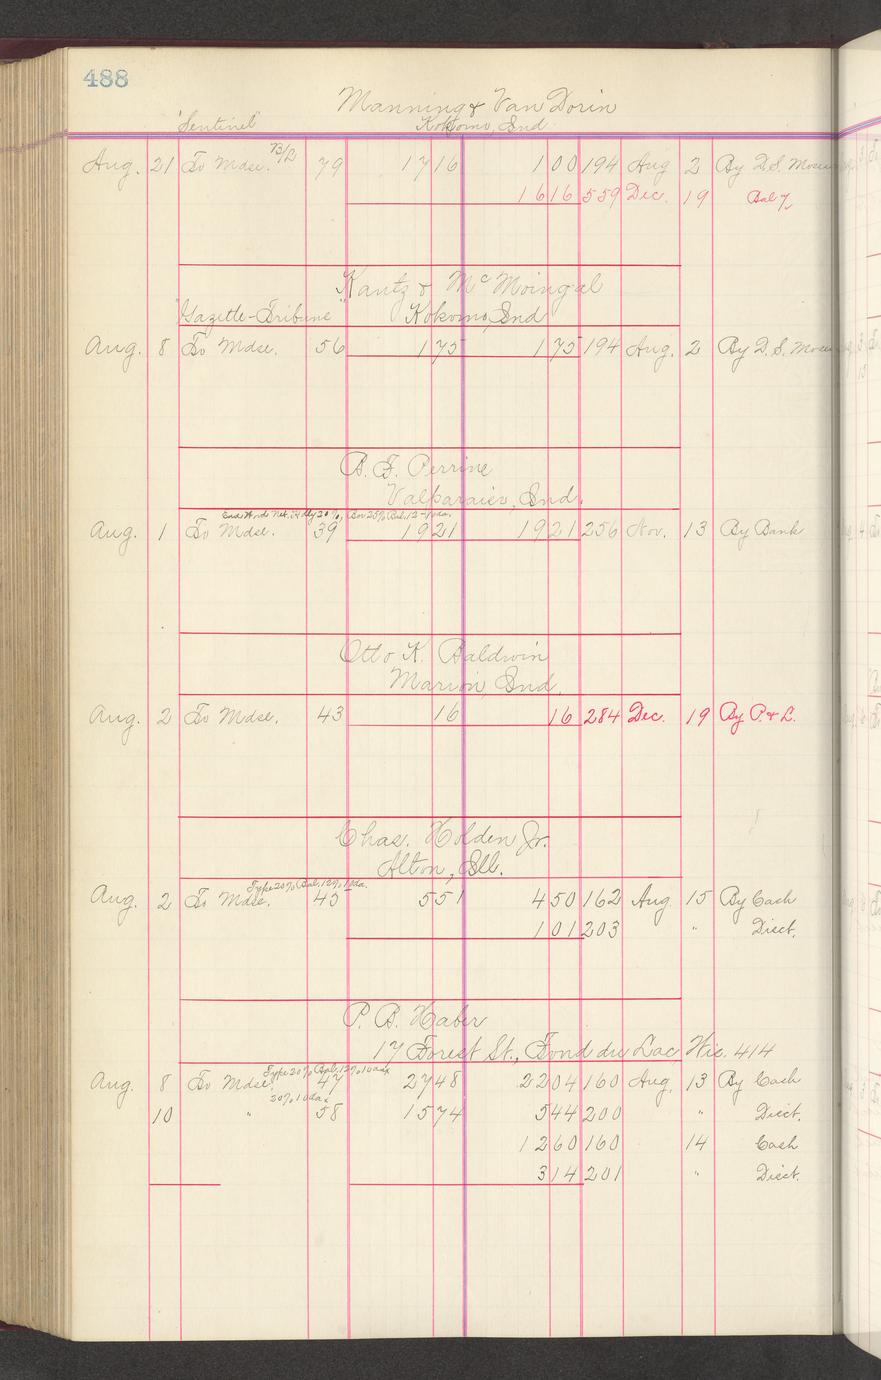 488
Manning & Van Dorin
"Sentinel" Kokomo, Ind
Aug. 21 To Mdse. B/L 79 17 16 1 00 194 Aug 2 By D. S. Moses
16 16 559 Dec. 19 Bal
Kantz & McMoingal
"Gazette-Tribune" Kokomo, Ind
Aug. 8 To Mdse. 56 1 75 1 75 194 Aug. 2 By D. S. Moses
B. F. Perrine
Valparaiso, Ind.
Aug. 1 To Mdse. 39 19 21 19 21 256 Nov. 13 By Bank
Otto K. Baldwin
Marion, Ind.
Aug. 2 To Mdse. 43 16 16 284 Dec. 19 By P. & L.
Chas. Holden Jr.
Alton, Ill.
Type 20% Bal. 12% 10da.
Aug. 2 To Mdse. 45 5 51 4 50 162 Aug. 15 By Cash
1 01 203 " Disct.
P. B. Haber
17 Forest St., Fond du Lac, Wis. 414
Type 20% Bal. 12% 10da
Aug. 8 To Mdse. 47 27 48 22 04 160 Aug. 13 By Cash
20% 10da
10 " 58 15 74 5 44 200 " Disct.
12 60 160 14 Cash
3 14 201 " Disct.